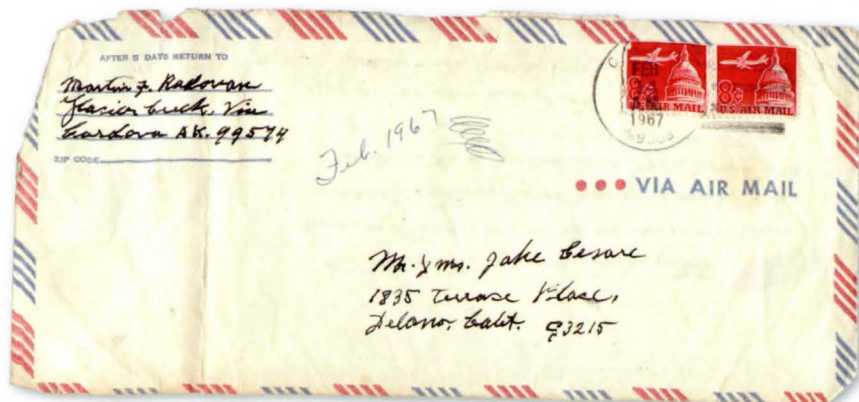 AFTER 5 DAYS RETURN TO
Martin F. Radovan
Glacier Creek, Via
Cordova AK. 99574
ZIP CODE
Feb. 1967
FEB
24
AM
1967
AIR MAIL
8¢
U.S. AIR MAIL
VIA AIR MAIL
Mr. & Mrs. Jake Cesare
1835 Terrace Place,
Delano, Calif. 93215